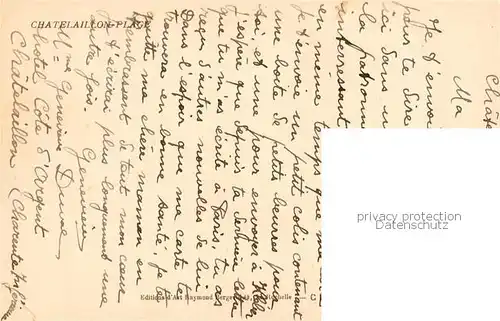 CHATELAILLON-PLAGE
Châte
Ma
Je t'envoi
pour te dire
ici sans
la patronne
interressant
en même temps que ma
Je t'envoie un petit colis contenant
une boîte de petits beurres pour
toi et une pour envoyer à
J'espère que depuis ta dernière lettre
que tu m'as écrite à Paris, tu as
reçu d'autres nouvelles de lui
Dans l'espoir que ma carte te
trouvera en bonne santé, je te
quitte ma chère maman en
t'embrassant de tout mon cœur
Je t'écrirai plus longuement une
autre fois. Geneviève
Mme Geneviève
Hôtel Côte d'Argent
Châtelaillon (Charente Inf
Editions d'Art Raymond Bergevin, La Rochelle
privatephotocollection
www.delcampe.net